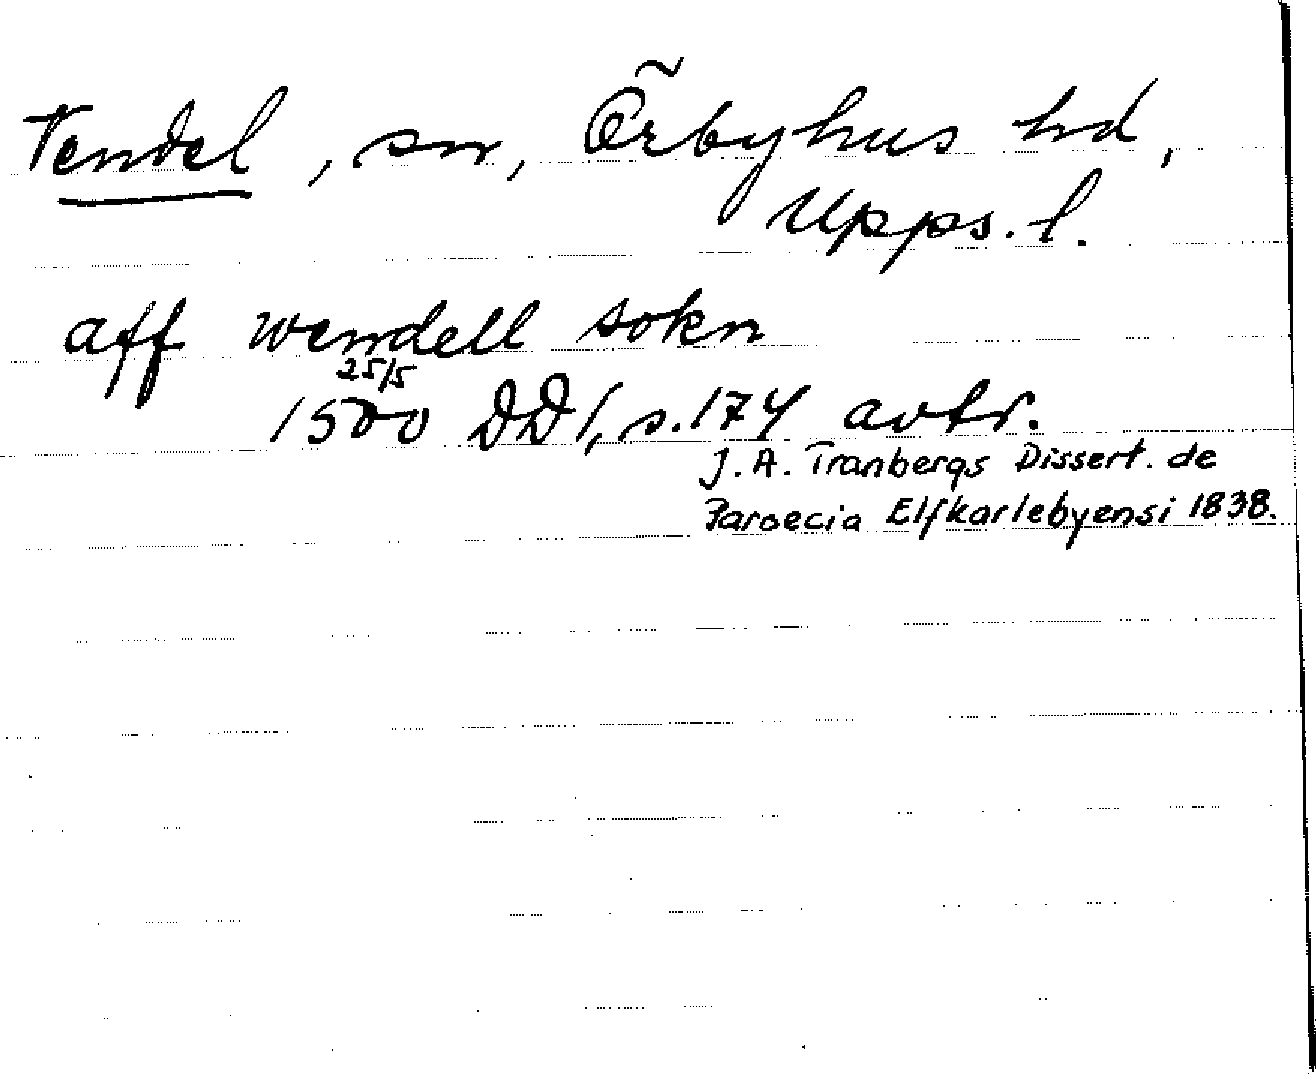 Vendel, sn, Örbyhus hd,
Upps. l.
aff wendell sokn
25/5
1500 DD1, s. 174 avtr.
J. A. Tranbergs Dissert. de
Paroecia Elfkarlebyensi 1838.